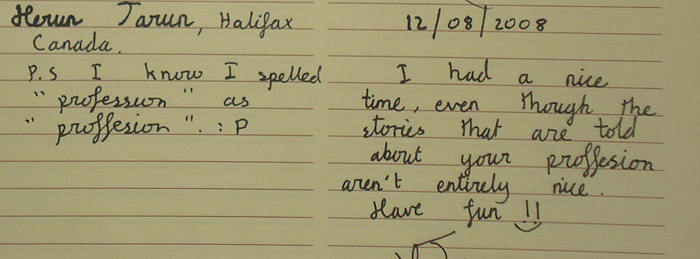 Herun Tarun, Halifax
Canada.
P.S I know I spelled
"profession" as
"proffesion". :P
12/08/2008
I had a nice
time, even though the
stories that are told
about your proffesion
aren't entirely nice.
Have fun !!